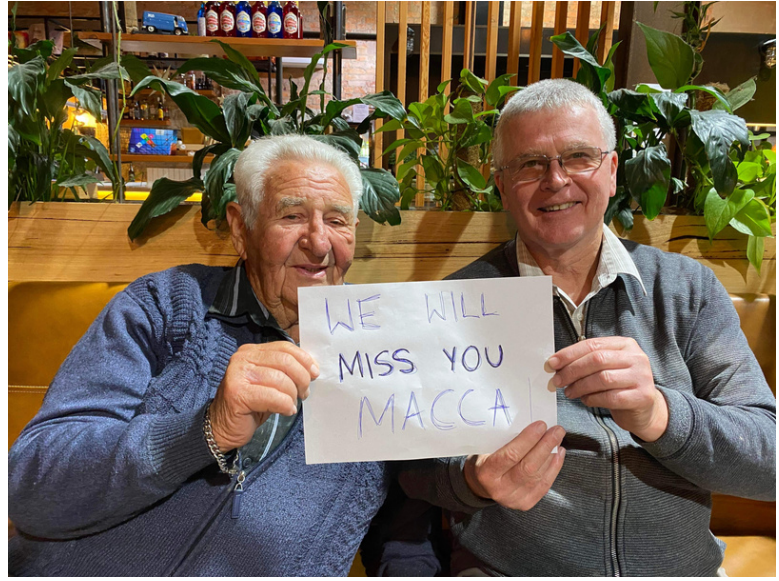 WE WILL
MISS YOU
MACCA!